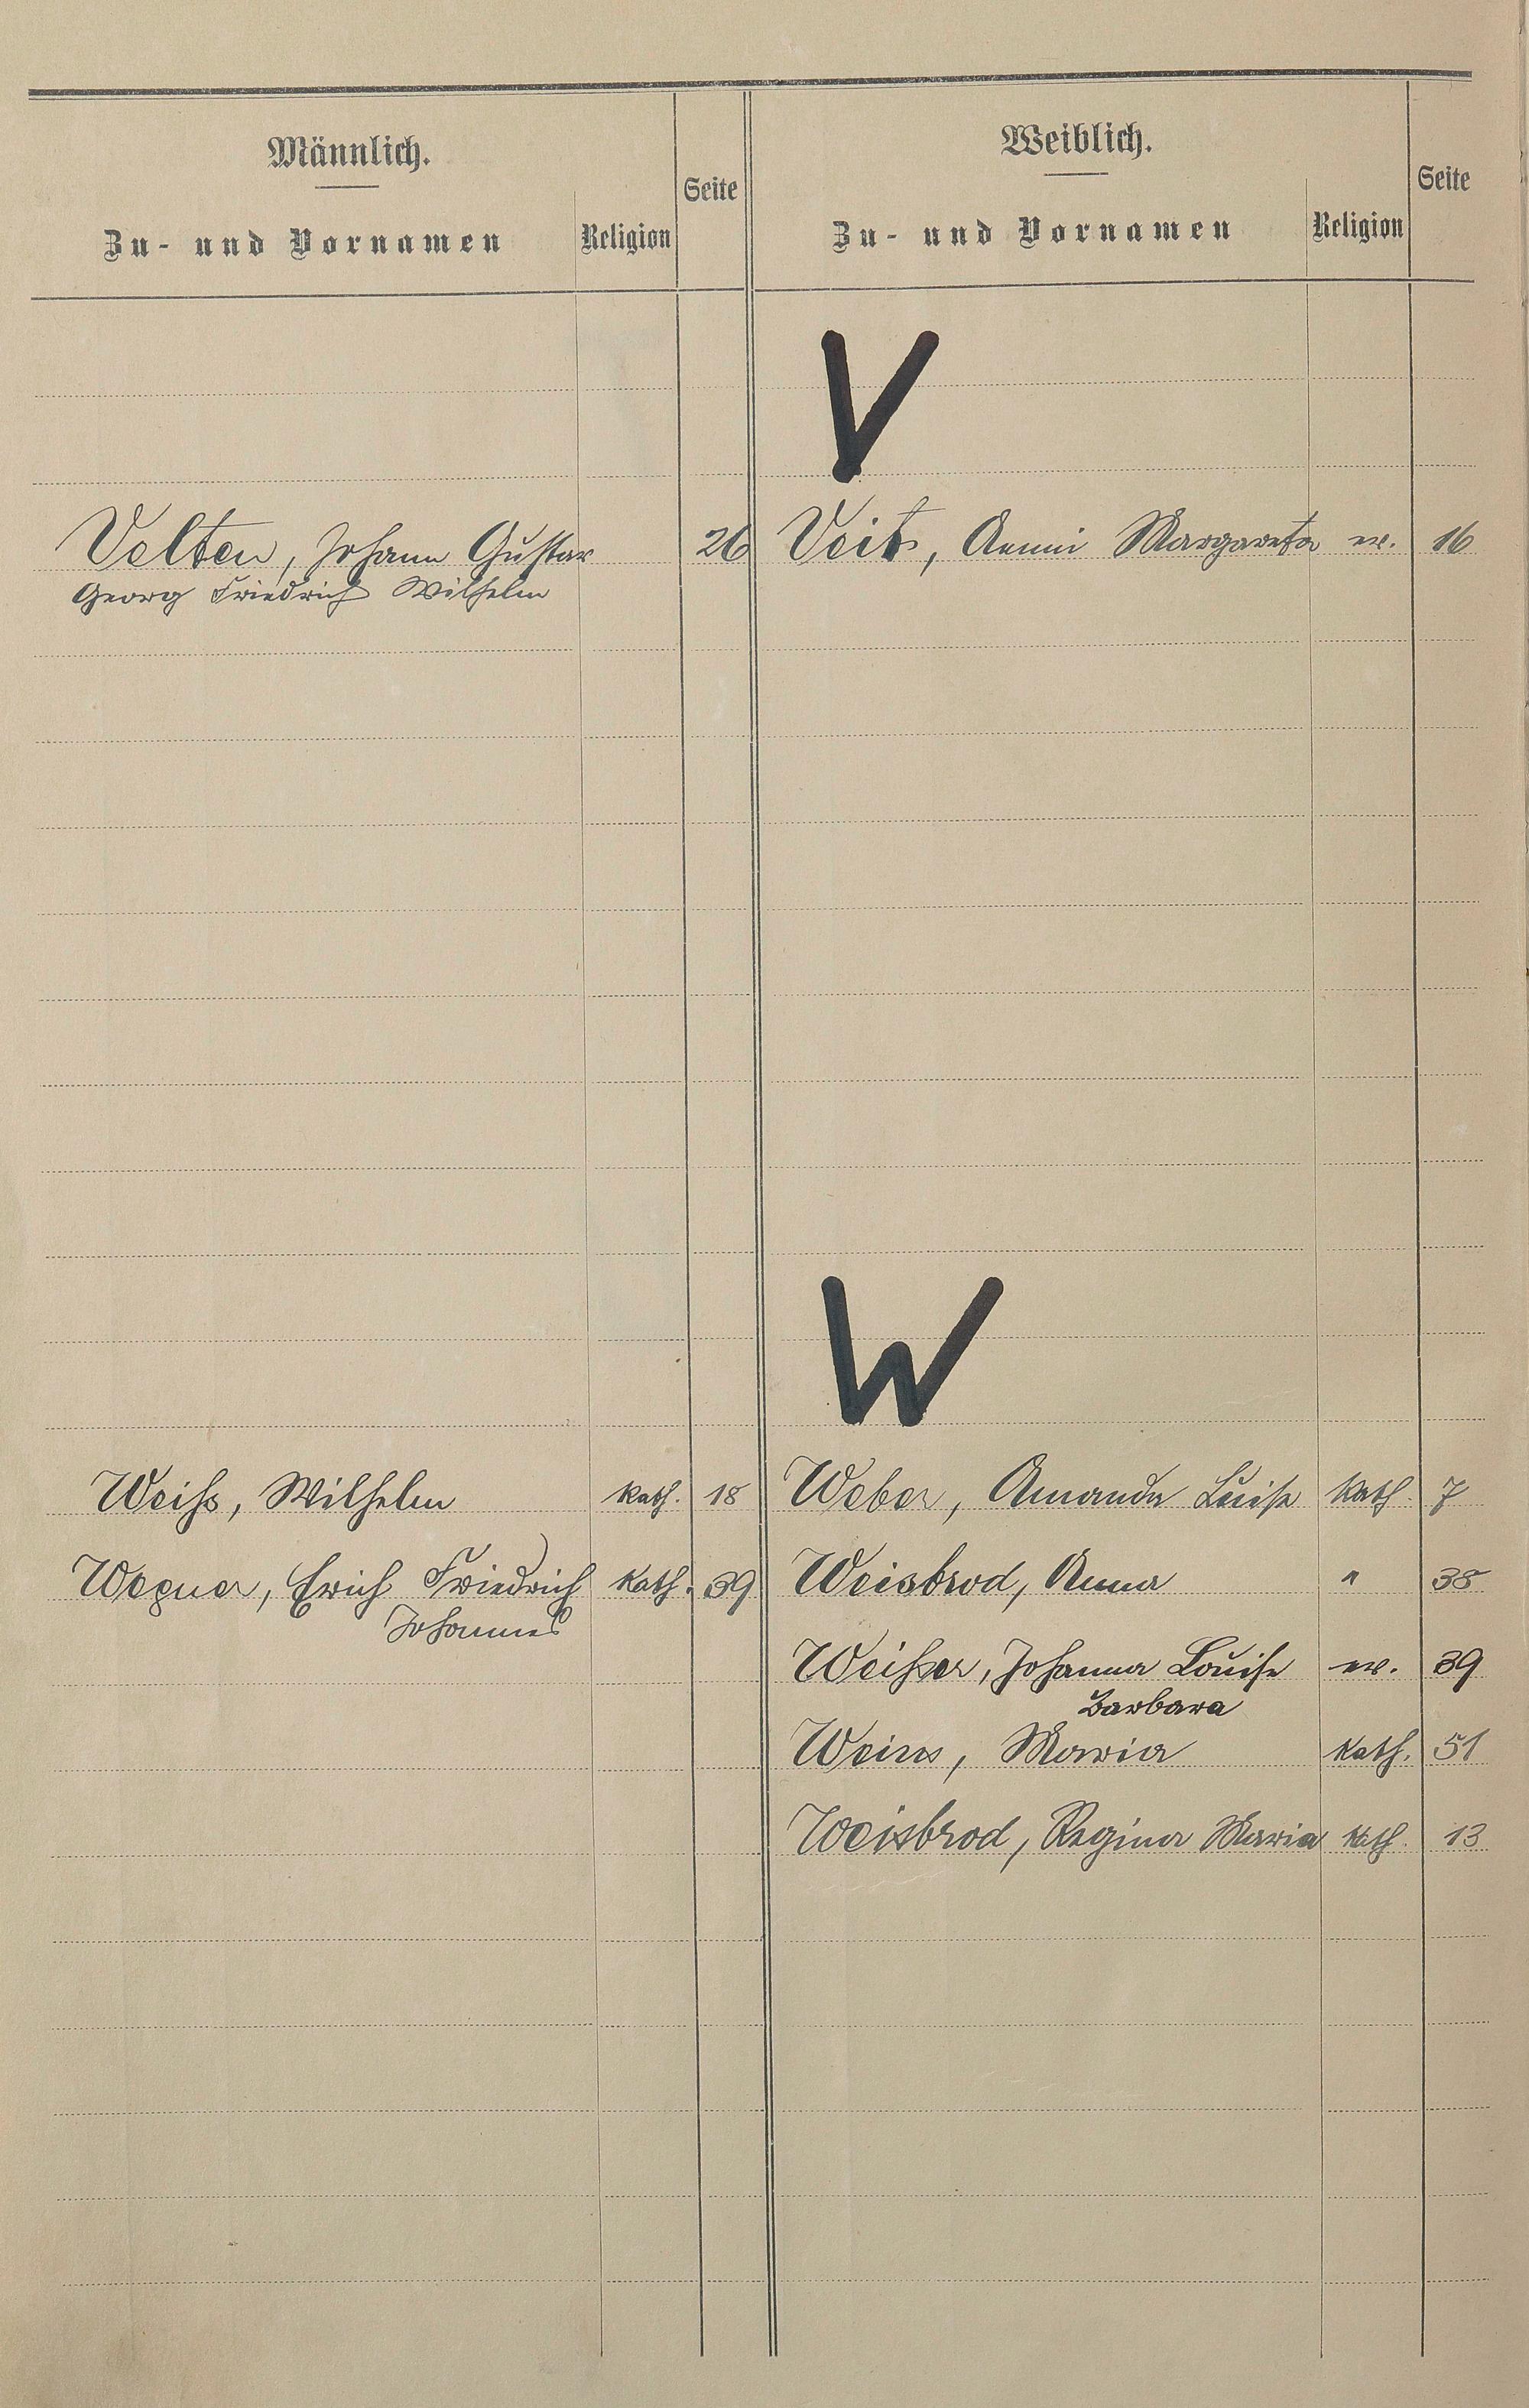 Männlich.
Zu- und Vornamen Religion Seite
Weiblich.
Zu- und Vornamen Religion Seite
V
Velten, Johann Gustav 26
Georg Friedrich Wilhelm
Veit, Aenni Margareta ev. 16
W
Weiß, Wilhelm kath. 18
Wegner, Erich Friedrich kath. 39
Johannes
Weber, Amanda Luise kath. 7
Weisbrod, Anna " 38
Weißer, Johanna Louise ev. 39
Barbara
Weins, Maria kath. 51
Weisbrod, Regina Maria kath. 13